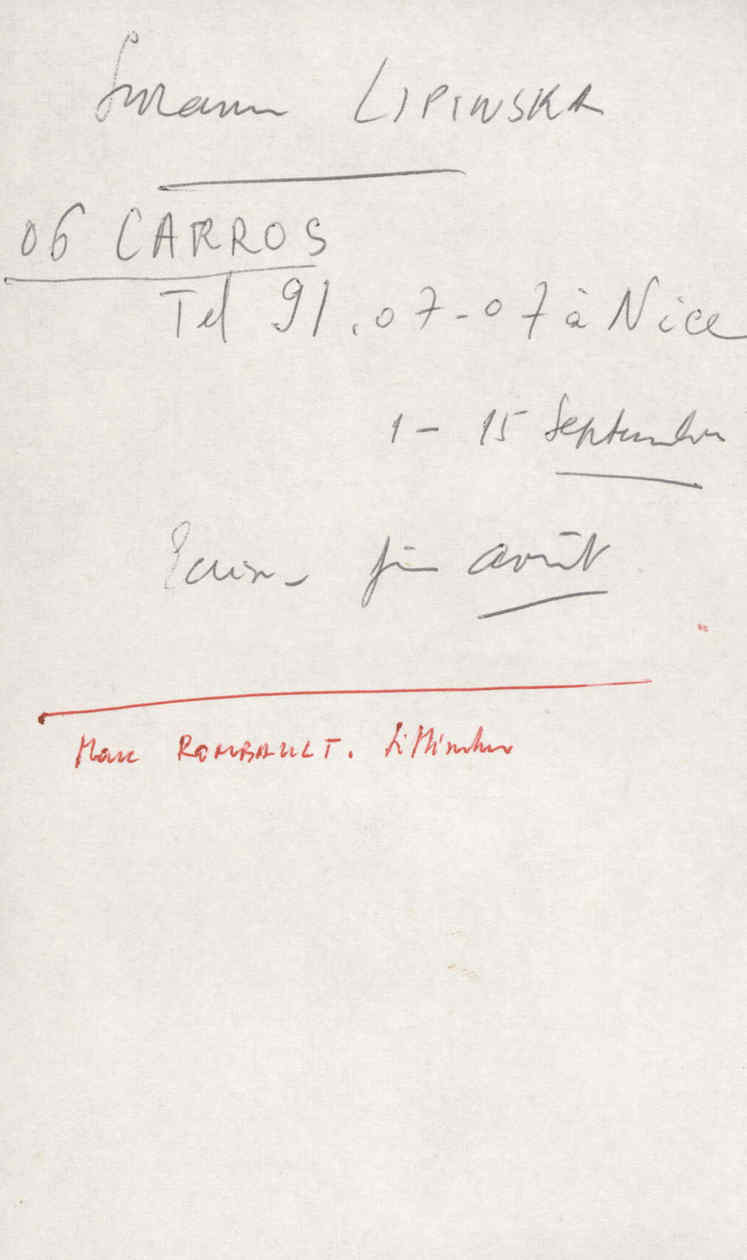 Suzanne LIPINSKA
06 CARROS
Tel 91.07-07 à Nice
1 - 15 Septembre
Ecrire - fin août
Marc ROMBAULT.